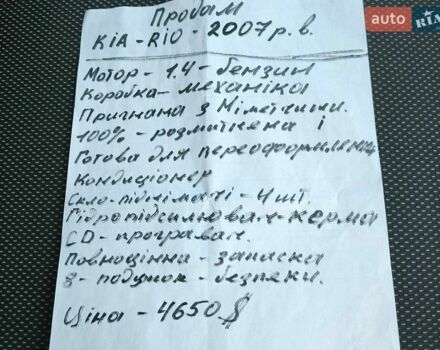 Продам
KIA - RIO - 2007 р. в.
Мотор - 1.4 - бензин
Коробка - механіка
Пригнана з Німеччини.
100% - розмитнена і
Готова для переоформлення
Кондиціонер
Скло-підіймачі - 4 шт.
Гідропідсилювач - керма
CD - програвач.
Повноцінна - запаска
8 - подушок - безпеки.
Ціна - 4650 $
auto
RIA